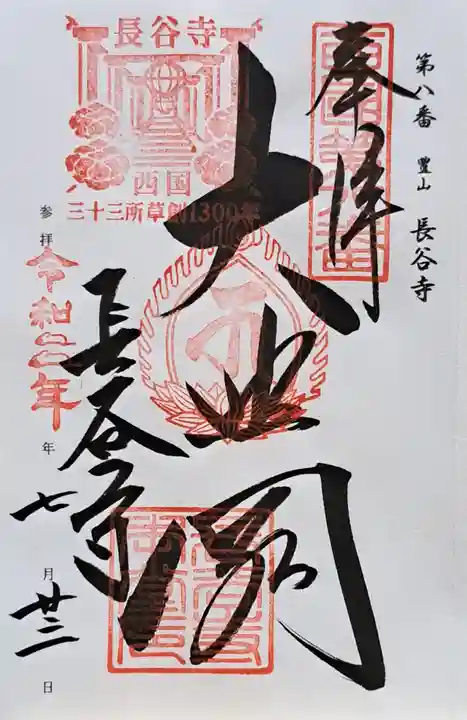 第八番 豊山 長谷寺
奉拝
大悲閣
長谷寺
長谷寺
西国
三十三所草創1300年
参拝 令和二年 年 七 月 廿三 日